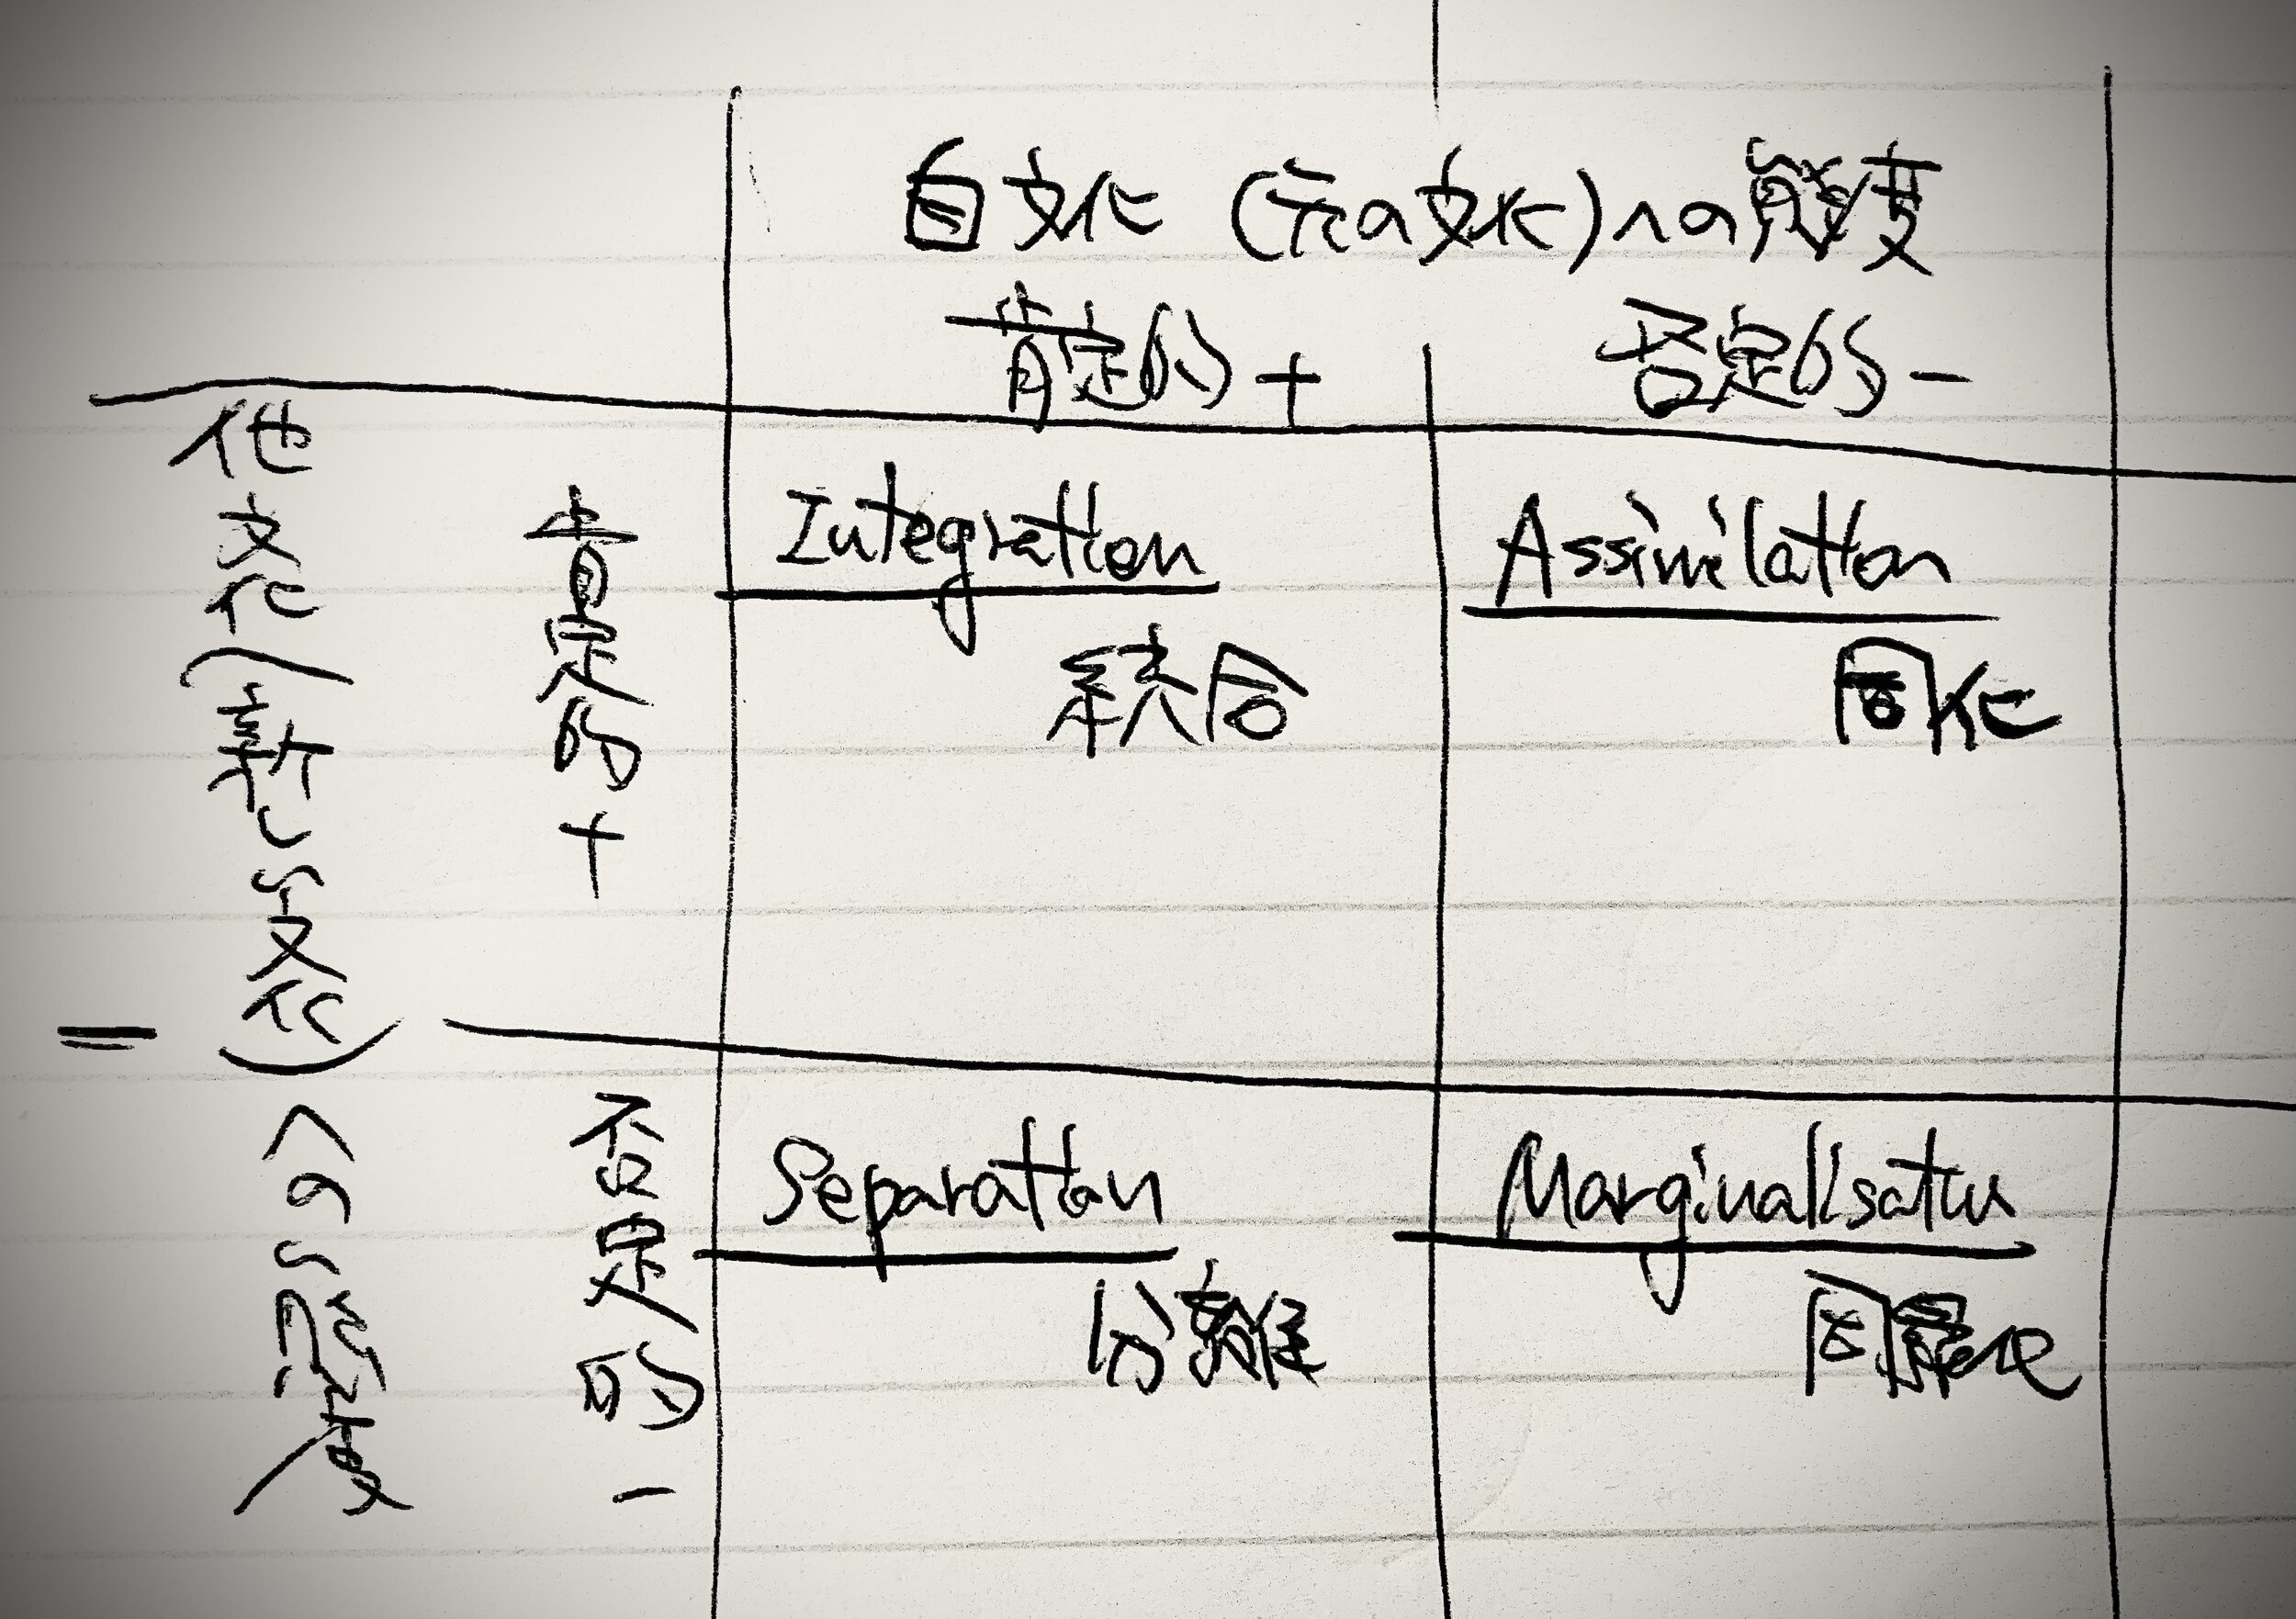 自文化 (元の文化)への態度
肯定的 +
否定的 -
他文化(新しい文化)への態度
肯定的 +
Integration
統合
Assimilation
同化
否定的 -
Separation
分離
Marginalisation